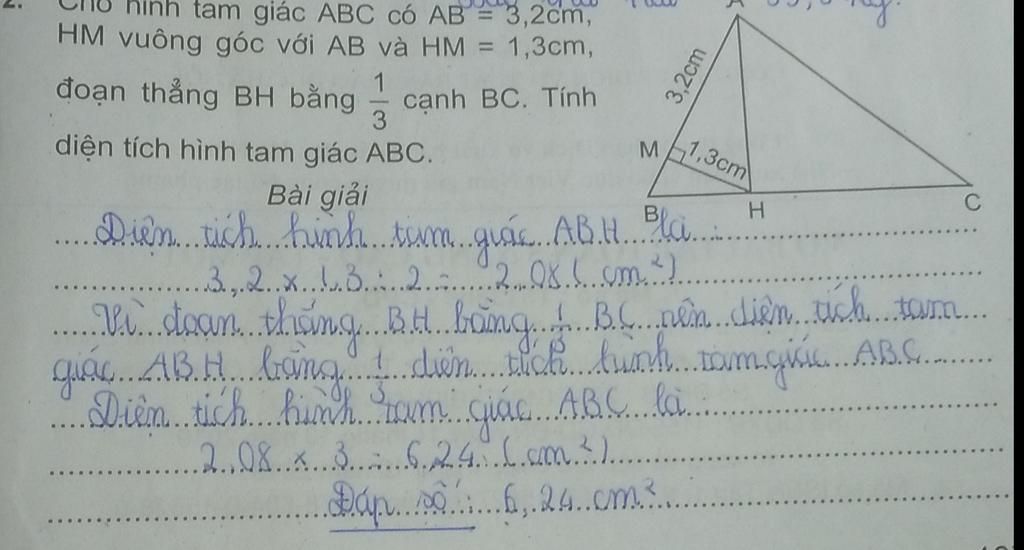 2. Cho hình tam giác ABC có AB = 3,2cm,
HM vuông góc với AB và HM = 1,3cm,
đoạn thẳng BH bằng 1/3 cạnh BC. Tính
diện tích hình tam giác ABC.
A
3,2cm
M
1,3cm
B
H
C
Bài giải
Diện tích hình tam giác ABH là :
3,2 x 1,3 : 2 = 2,08 ( cm²)
Vì đoạn thẳng BH bằng 1/3 BC nên diện tích tam
giác ABH bằng 1/3 diện tích hình tam giác ABC
Diện tích hình tam giác ABC là
2,08 x 3 = 6,24 ( cm²)
Đáp số : 6,24 cm²